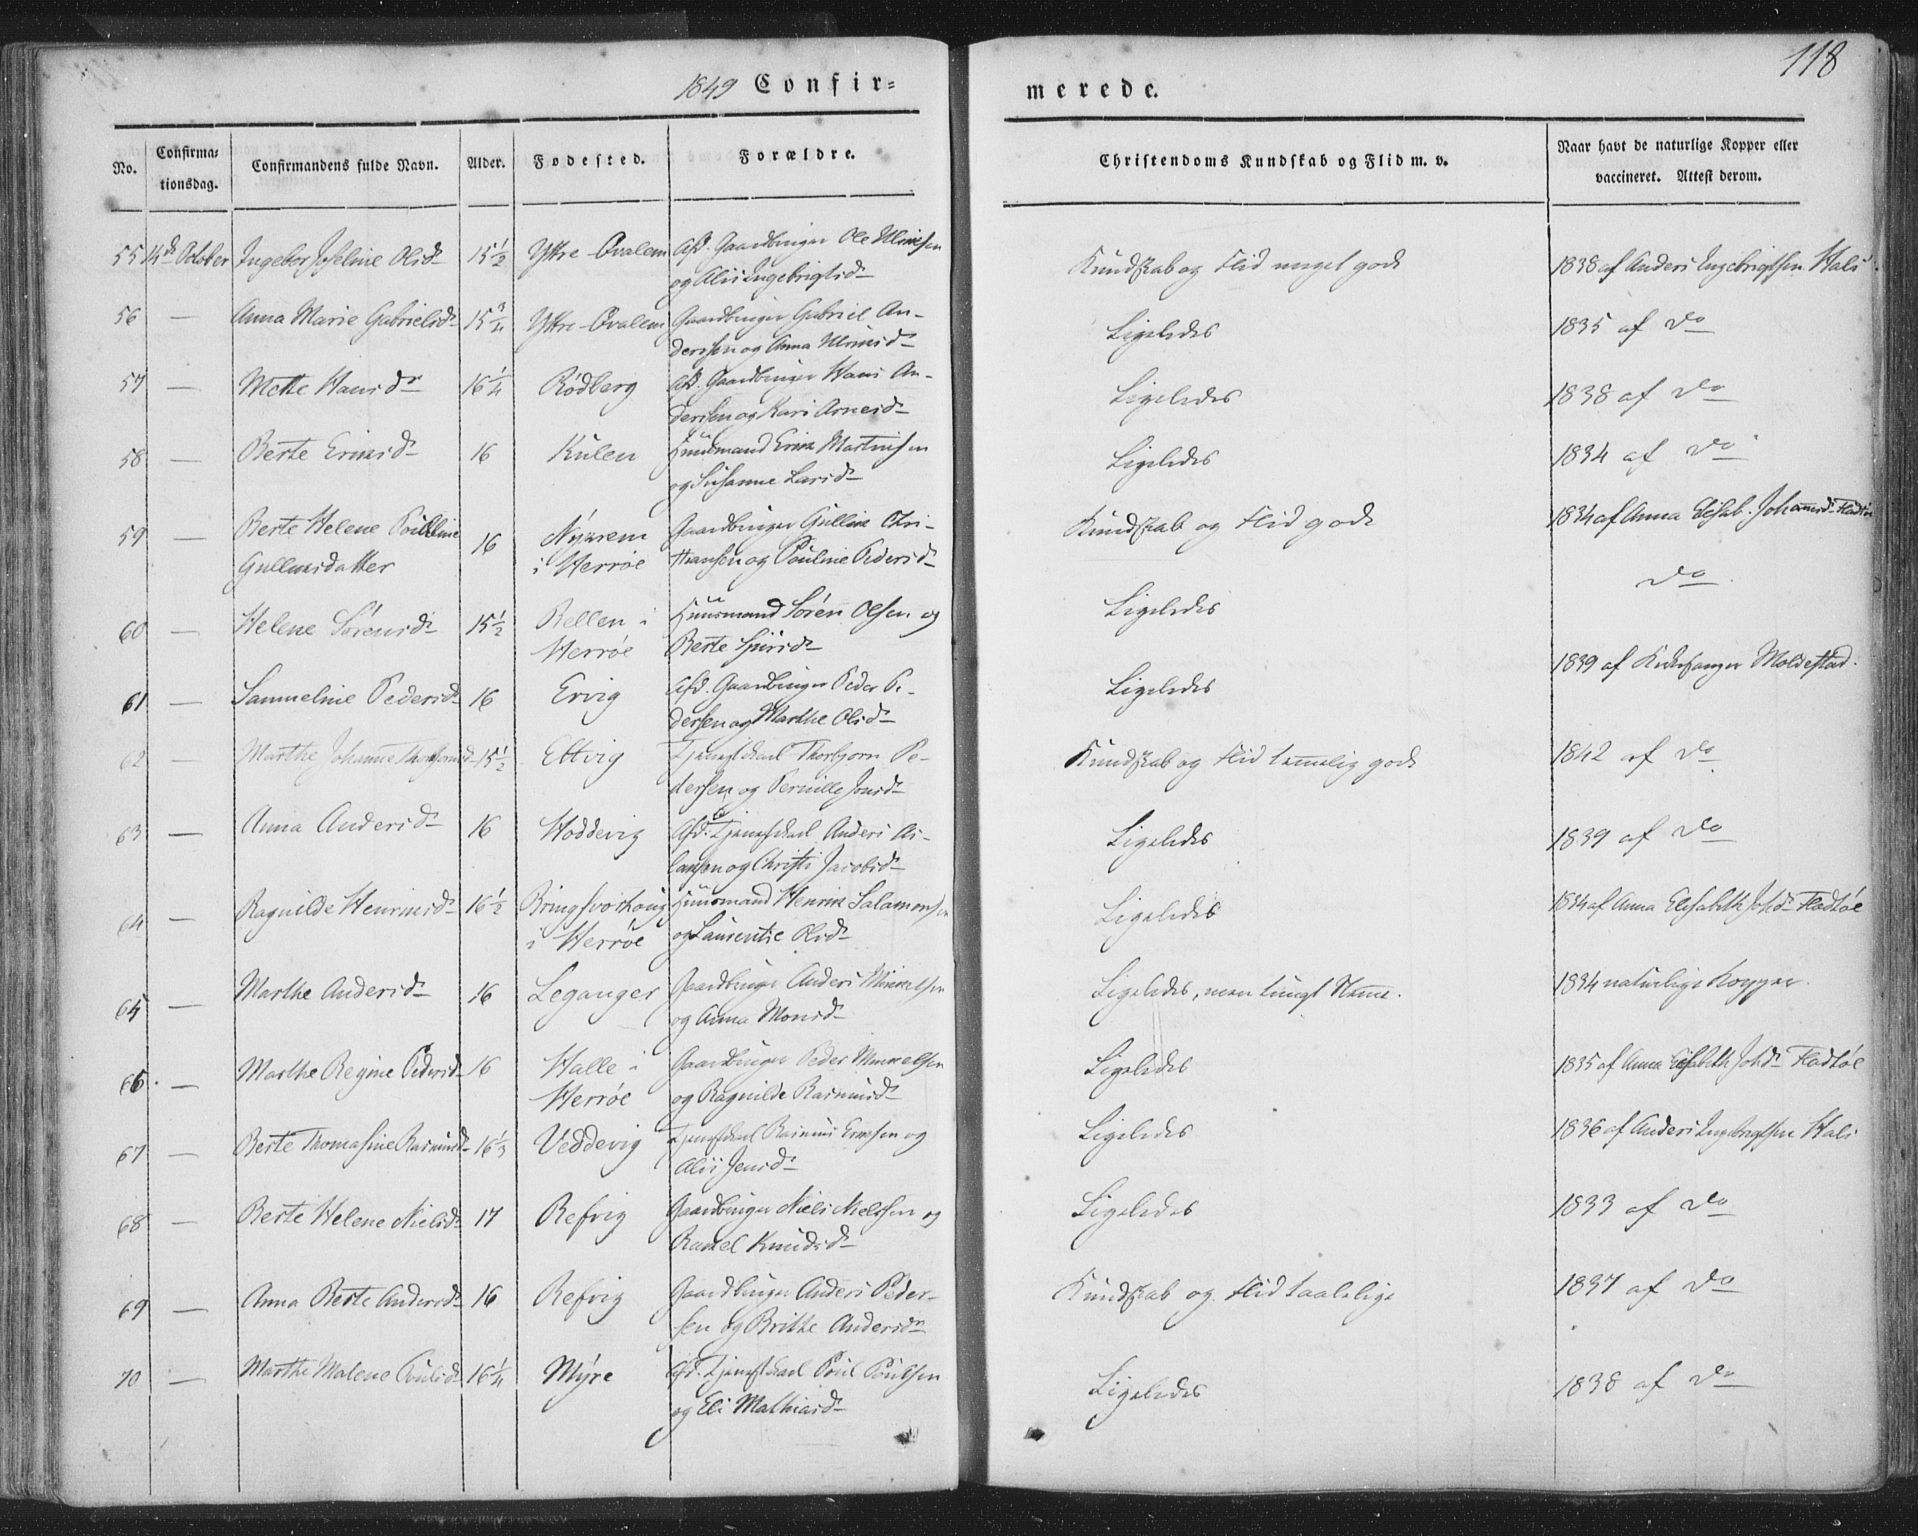 118
1849 Confir= merede.
No. Confirma= tionsdag. Confirmandens fulde Navn. Alder. Fødested. Forældre. Christendoms Kundskab og Flid m. v. Naar havt de naturlige Kopper eller vaccineret. Attest derom.
55 14de October Ingebor Joseline Olsd 15 1/2 Yttre-Qvalem Afd. Gaardbruger Ole Ulrniksen Kundskab og Flid meget gode 1838 af Anders Ingebrigtsen Hals
og Alis Ingebrigtsd
56 — Anna Marie Gabrielsd 15 3/4 Yttre-Qvalem Gaardbruger Gabriel An- Ligeledes 1835 af do
dersen og Anna
57 — Mette Hansdr 16 1/4 Rødberg Afd. Gaardbruger Hans An- Ligeledes 1838 af do
dersen og Kari Arnesd
58 — Berte Ericsd 16 Kulen Huusmand Erik Martinsen Ligeledes 1834 af do
og Susanne Larsd
59 — Berte Helene Poulline 16 Nykrem Gaardbruger Gullik Chri- Kundskab og Flid gode 1834 af Anna Elisab. Johannsd. Fladtøe
Gullinsdatter i Herrøe stiansen og Pouline Pedersd
60 — Helene Sørensd 15 1/2 Rellen i Huusmand Søren Olsen og Ligeledes do
Herrøe Berte Siursd
61 — Sammeline Pedersd 16 Ervig Afd. Gaardbruger Peder Pe- Ligeledes 1839 af Kirkesanger Moldestad.
dersen og Marthe Olsd
62 — Marthe Johanne Thorbjørnsd 15 1/2 Ettvig Tjenestekarl Thorbjørn Pe- Kundskab og Flid temmelig gode 1842 af do
dersen og Pernille Jonsd
63 — Anna Andersd 16 Hoddevig Afd. Tjenestekarl Anders As- Ligeledes 1839 af do
laksen og Christi Jacobsd
64 — Ragnilde Henriksd 16 1/2 Bringsvorhoug Huusmand Henrik Salamonsen Ligeledes 1834 af Anna Elisabeth Johsd Fladtøe
i Herrøe og Laurentse Olsd
65 — Marthe Andersd 16 Leganger Gaardbruger Anders Mikkelsen Ligeledes, men tungt Nemme. 1834 naturlige Kopper.
og Anna Monsd
66. — Marthe Regine Pedersd 16 Halle i Gaardbruger Peder Mikkelsen Ligeledes 1835 af Anna Elisabeth Johsd Fladtøe
Herrøe og Ragnilde Rasmusd
67 — Berte Thomasine Rasmusd 16 1/3 Veddevig Tjenestekarl Rasmus Ericksen og Ligeledes 1836 af Anders Ingebrigtsen Hals
Alis Jensd
68 — Berte Helene Nielsd 17 Refvig Gaardbruger Niels Nielssen og Ligeledes 1833 af do
Rakel Knudsd
69 — Anna Berte Andersd 16 Refvig Gaardbruger Anders Peder- Kundskab og Flid taalelige 1837 af do
sen og Brithe Andersdr
70 — Marthe Malene Poulsd 16 1/4 Myre Afd. Tjenestekarl Poul Poulsen Ligeledes 1838 af do
og Eli Mathiasd